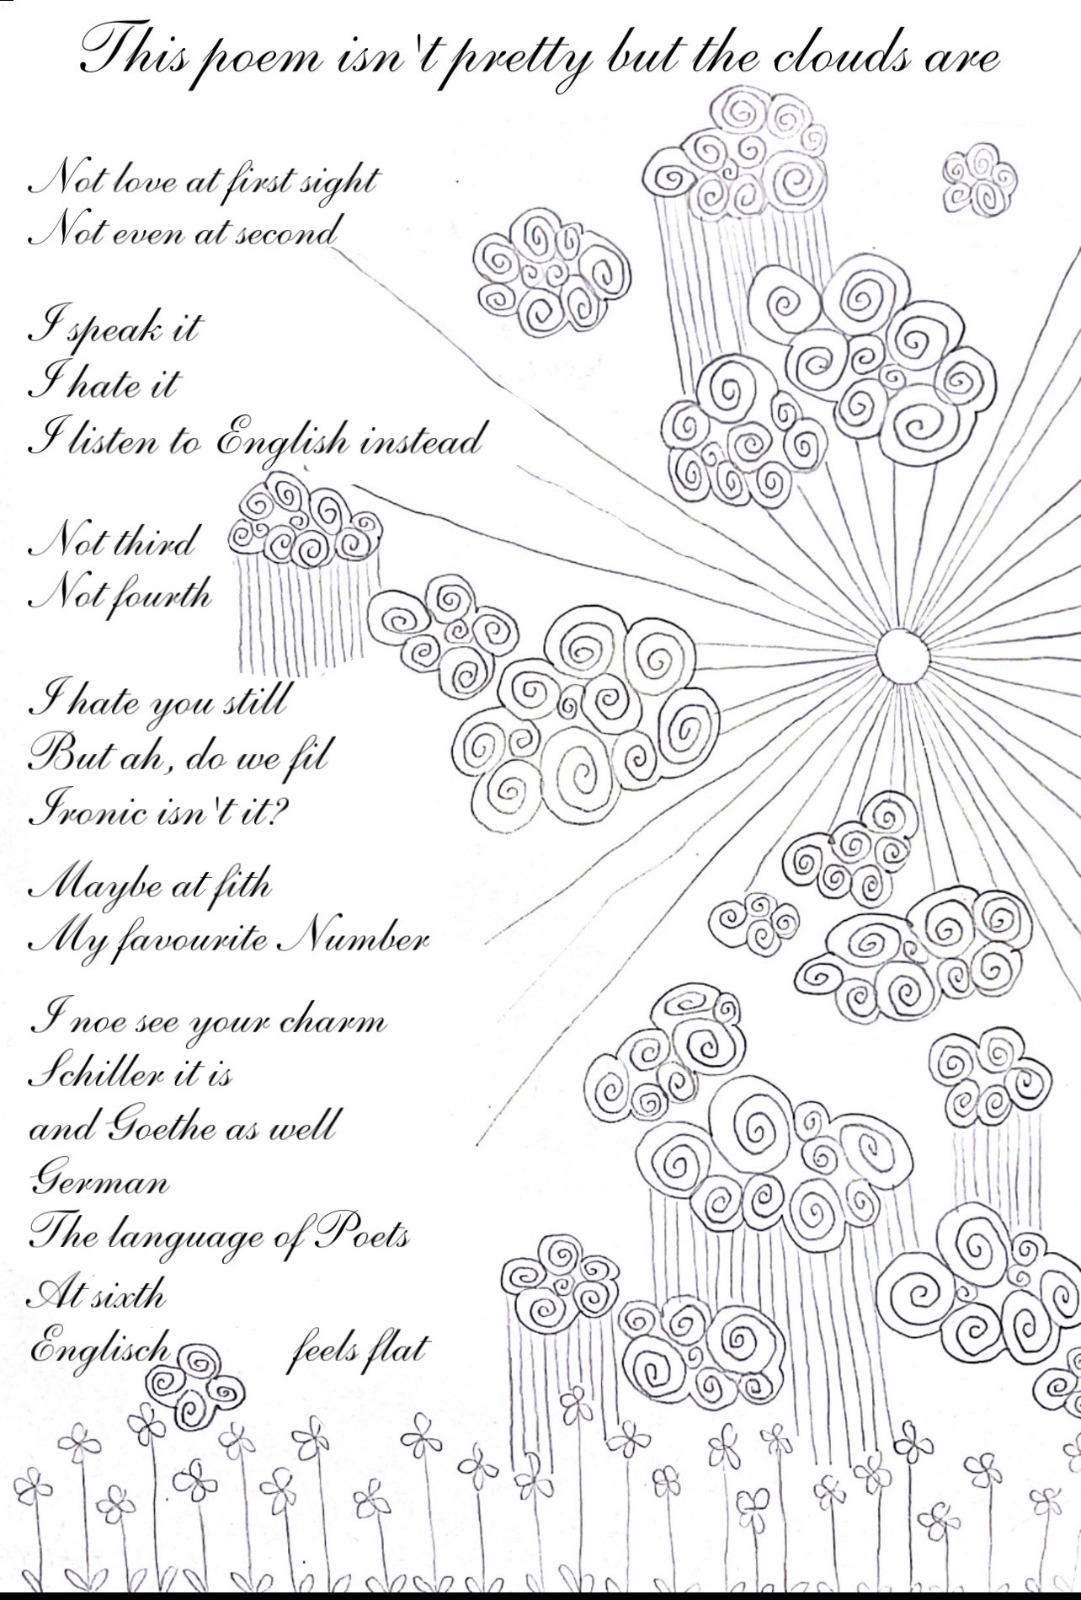 This poem isn't pretty but the clouds are
Not love at first sight
Not even at second
I speak it
I hate it
I listen to English instead
Not third
Not fourth
I hate you still
But ah, do we fil
Ironic isn't it?
Maybe at fith
My favourite Number
I noe see your charm
Schiller it is
and Goethe as well
German
The language of Poets
At sixth
Englisch feels flat